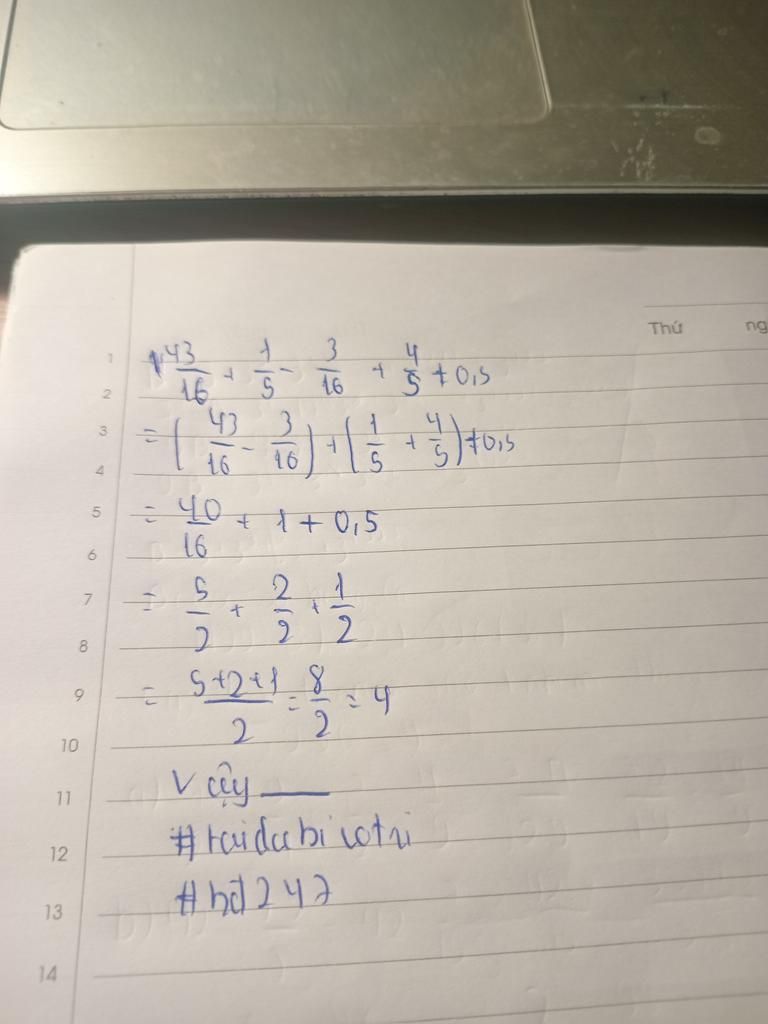 Thứ ng
1 43/16 + 1/5 - 3/16 + 4/5 + 0,5
2
3 = (43/16 - 3/16) + (1/5 + 4/5) + 0,5
4
5 = 40/16 + 1 + 0,5
6
7 = 5/2 + 2/2 + 1/2
8
9 = 5+2+1/2 = 8/2 = 4
10
11 Vậy
12
13 #hđ247
14